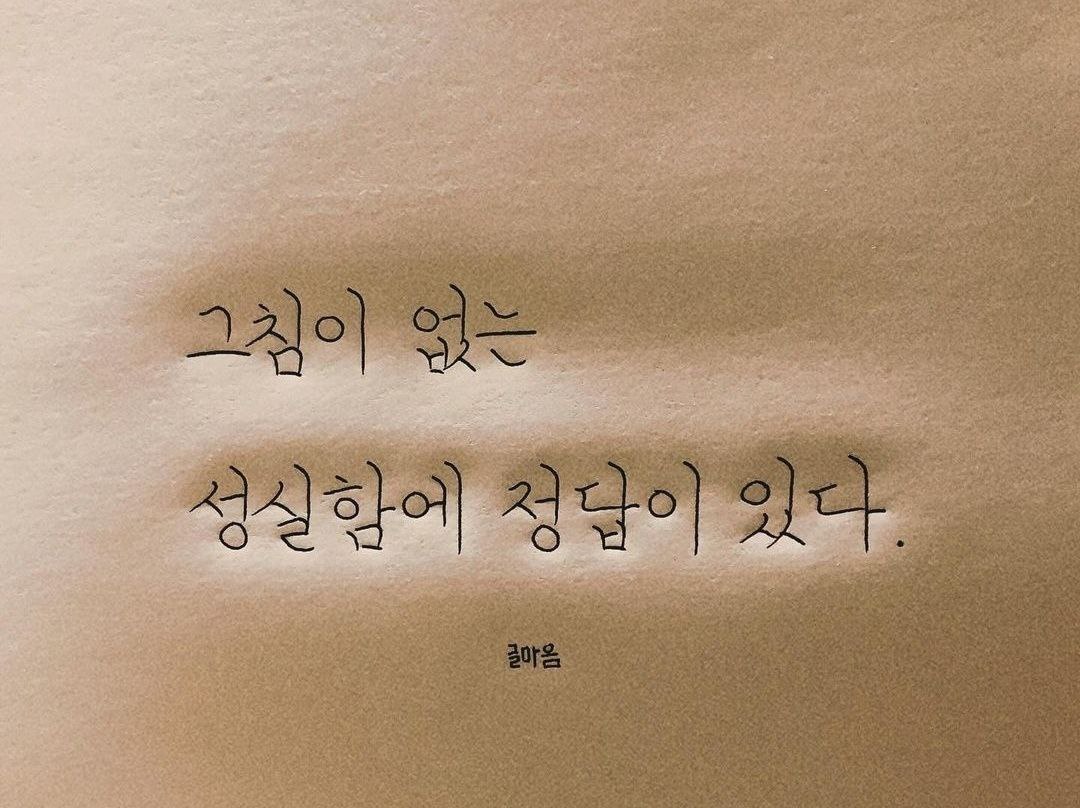 그침이 없는
성실함에 정답이 있다.
글마옴